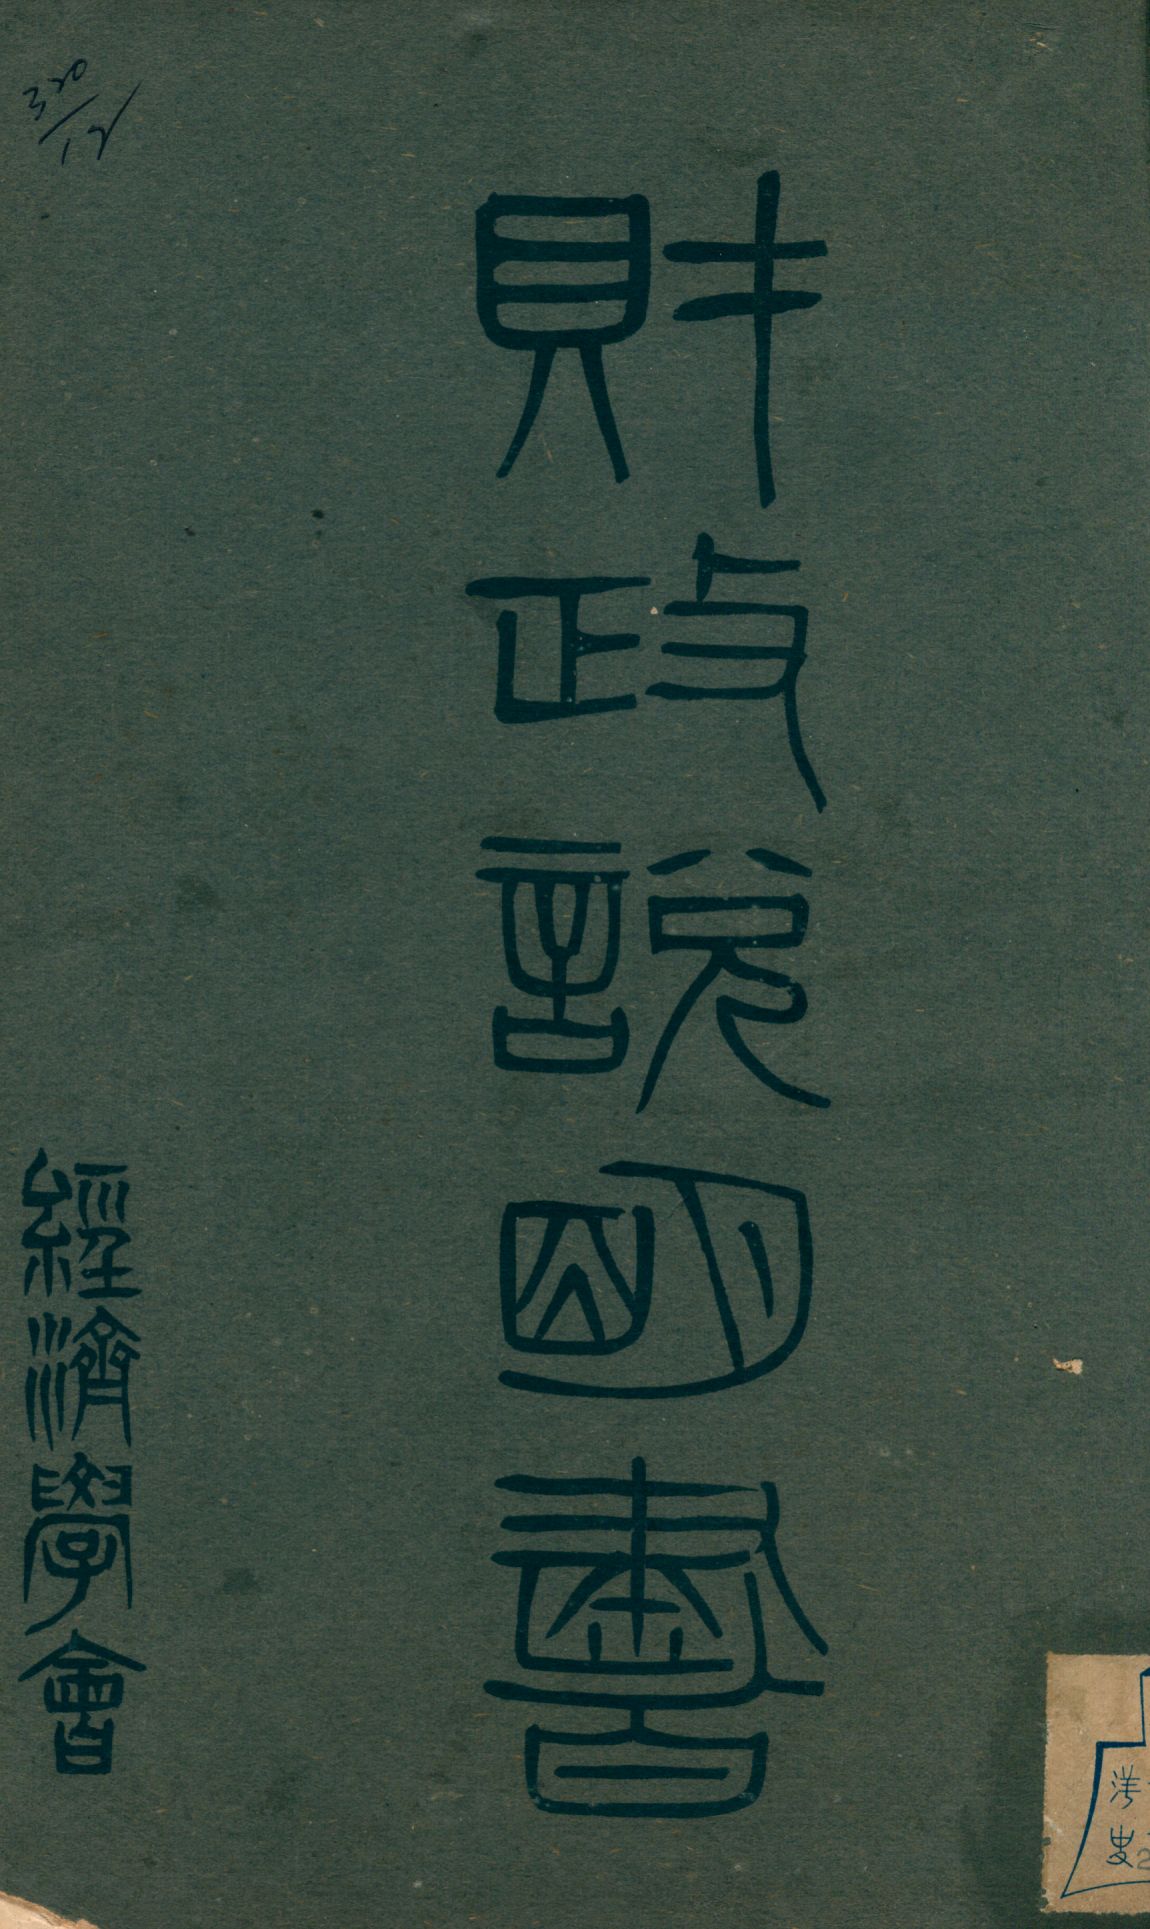 財政說明書
經濟學會
320/12
洋
史2